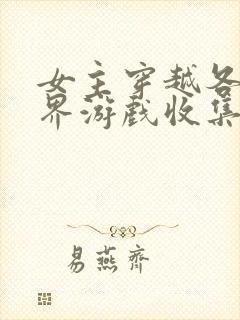 女主穿越各
界游戏收集
易燕齐